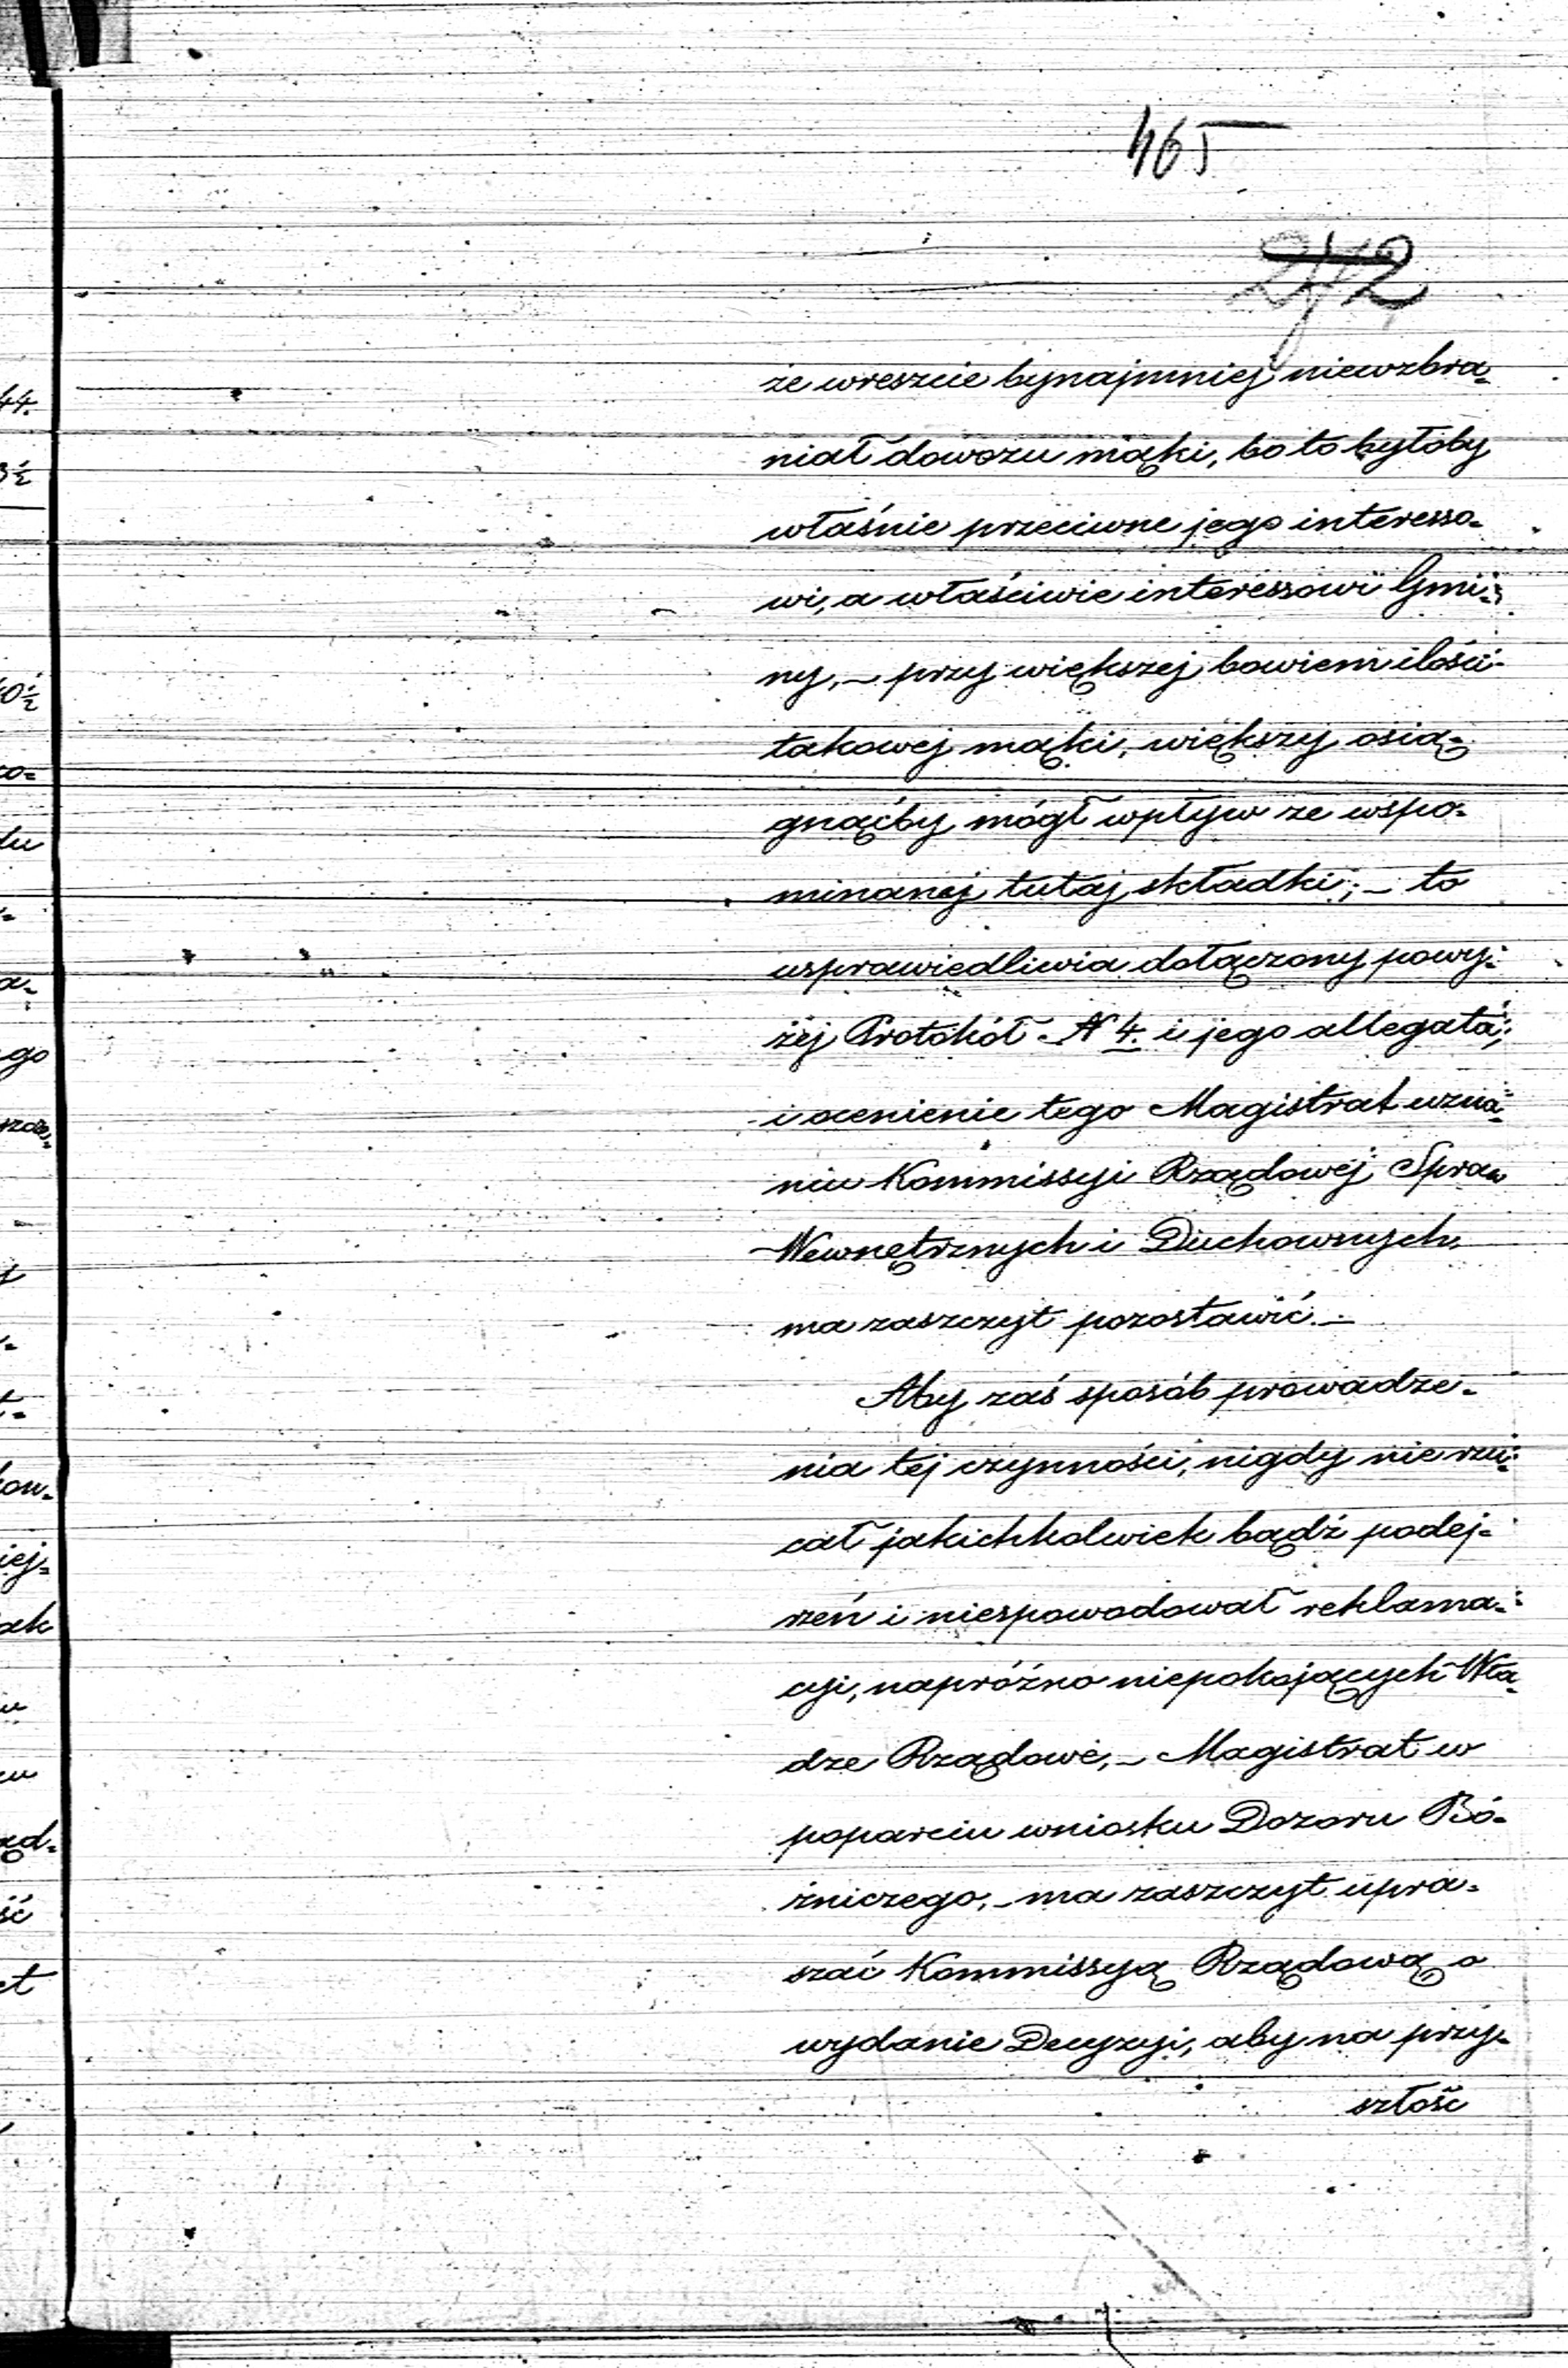 465
272
że wreszcie bynajmniej niewzbra-
niał dowozu mąki, bo to byłoby
właśnie przeciwne jego interesso-
wi, a właściwie interessowi Gmi-
ny, - przy większej bowiem ilości
takowej mąki, większy osią-
gnąćby mógł wpływ ze wspo-
minanej tutaj składki; - to
usprawiedliwia dołączony powy-
żej Protokół N 4. i jego allegata;
i ocenienie tego Magistrat uzna-
niu Kommissyi Rządowej Spraw
Wewnętrznych i Duchownych,
ma zaszczyt pozostawić. -
Aby zaś sposób prowadze-
nia tej czynności, nigdy nie rzu-
cał jakichkolwiek bądź podej-
rzeń i niespowodował reklama-
cyi, napróżno niepokojących Wła-
dze Rządowe, - Magistrat w
poparciu wniosku Dozoru Bó-
żniczego, - ma zaszczyt upra-
szać Kommissyą Rządową o
wydanie Decyzyi, aby na przy-
szłość
44.
3½
0½
co-
du
a-
go
ak
ąd-
ść
et